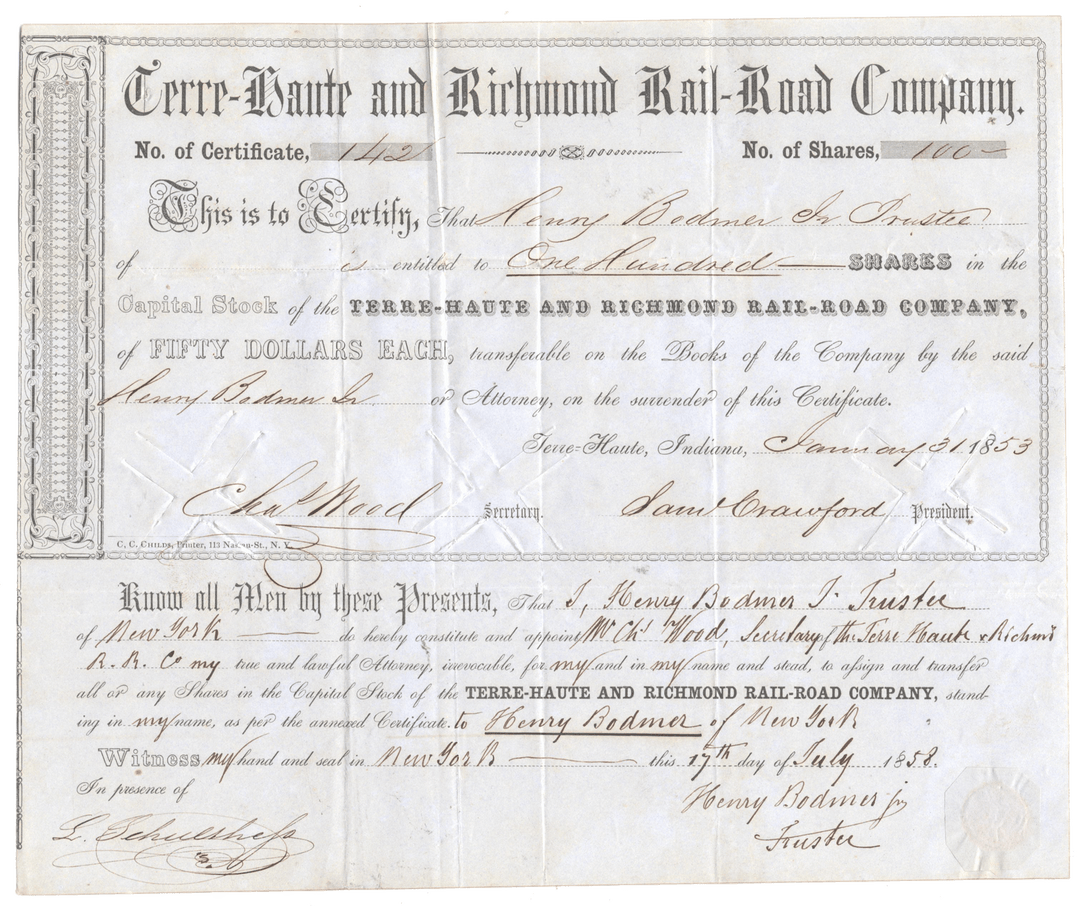 Terre-Haute and Richmond Rail-Road Company.
No. of Certificate, 142 No. of Shares, 100
This is to Certify, That Henry Bodmer Jr Trustee
of is entitled to One Hundred SHARES in the
Capital Stock of the TERRE-HAUTE AND RICHMOND RAIL-ROAD COMPANY,
of FIFTY DOLLARS EACH, transferable on the Books of the Company by the said
Henry Bodmer Jr or Attorney, on the surrender of this Certificate.
Terre-Haute, Indiana, January 31 1853
Chas Wood Secretary. Saml Crawford President.
C. C. CHILDS, Printer, 113 Nassau-St., N. Y.
Know all Men by these Presents, That I, Henry Bodmer Jr Trustee
of New York do hereby constitute and appoint Mr Chs Wood, Secretary of the Terre Haute & Richmd
R. R. Co my true and lawful Attorney, irrevocable, for my and in my name and stead, to assign and transfer
all or any Shares in the Capital Stock of the TERRE-HAUTE AND RICHMOND RAIL-ROAD COMPANY, stand-
ing in my name, as per the annexed Certificate. to Henry Bodmer of New York
Witness my hand and seal in New York this 17th day of July 1858.
In presence of
Henry Bodmer jr
Trustee
L. Schulthess